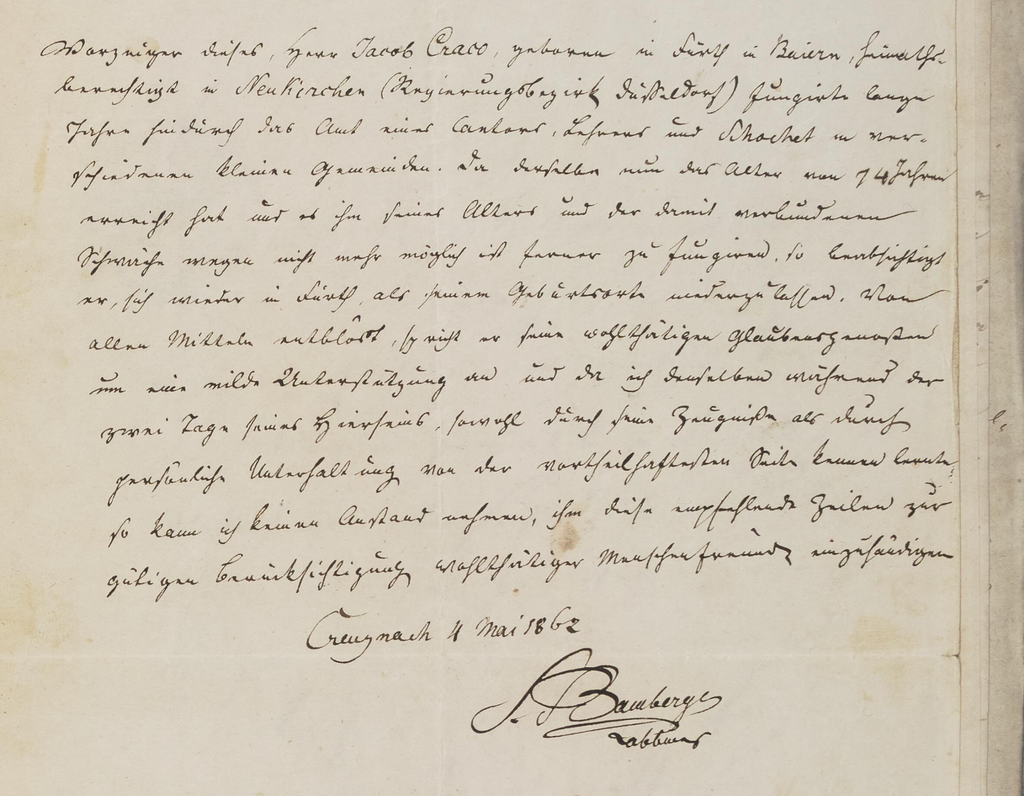 Vorzeiger dieses, Herr Jacob Craco, geboren in Fürth in Baiern, heimaths-
berechtigt in Neukirchen (Regierungsbezirk Düsseldorf) fungirte lange
Jahre hindurch das Amt eines Cantors, Lehrers und Schochet in ver-
schiedenen kleinen Gemeinden. Da derselbe nun das Alter von 74 Jahren
erreicht hat und es ihm seines Alters und der damit verbundenen
Schwäche wegen nicht mehr möglich ist ferner zu fungiren, so beabsichtigt
er, sich wieder in Fürth, als seinem Geburtsorte niederzulassen. Von
allen Mitteln entblöst, spricht er seine wohlthätigen Glaubensgenoßen
um eine milde Unterstützung an und da ich denselben während der
zwei Tage seines Hierseins, sowohl durch seine Zeugniße als durch
persönliche Unterhaltung von der vortheilhaftesten Seite kennen lernte,
so kann ich keinen Anstand nehmen, ihm diese empfehlende Zeilen zur
gütigen Berücksichtigung wohlthätiger Menschenfreunde einzuhändigen
Creuznach 4 Mai 1862
S. Bamberger
Rabbiner